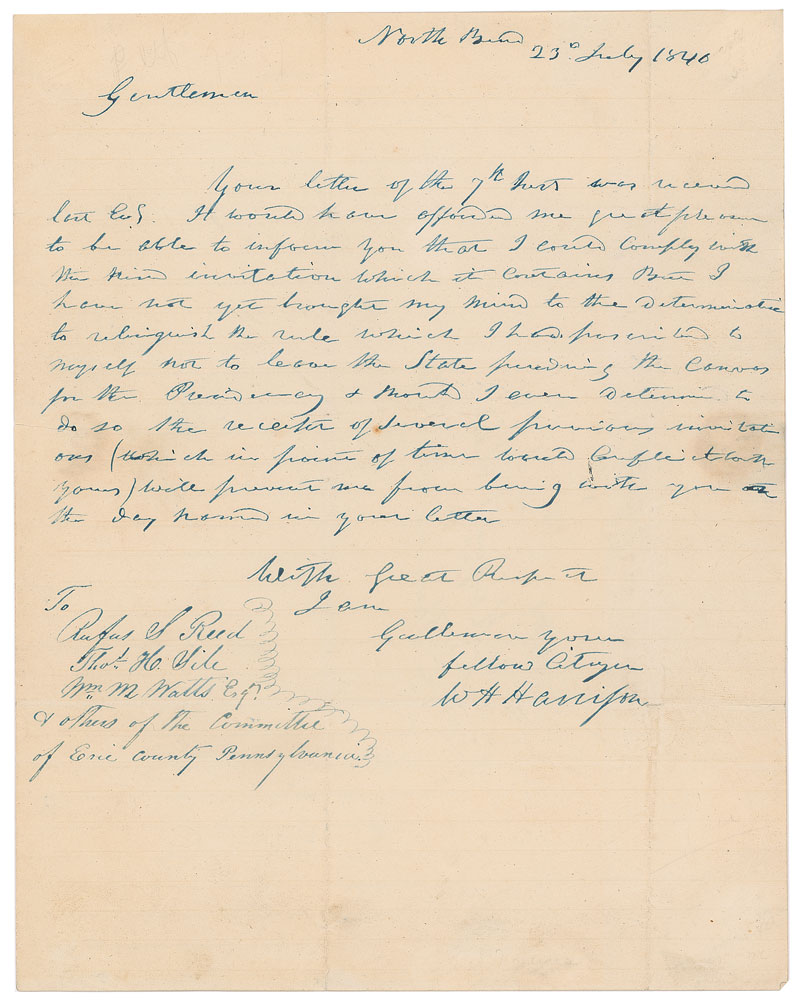 North Bend
23d July 1840
Gentlemen
Your letter of the 7th Inst was received
last Evg. It would have afforded me great pleasure
to be able to inform you that I could comply with
the kind invitation which it contains But I
have not yet brought my mind to the determination
to relinquish the rule which I had prescribed to
myself not to leave the State pending the Canvas
for the Presidency & should I even determine to
do so the receipt of several previous invitati
ons (which in point of time would conflict with
yours) will prevent me from being with you on
the day named in your letter
With great Respect
I am
Gentlemen your
fellow Citizen
W H Harrison
To
Rufus S Reed
Thos. H. Sile
Wm M Watts Esqr.
& others of the Committee
of Erie County Pennsylvania.